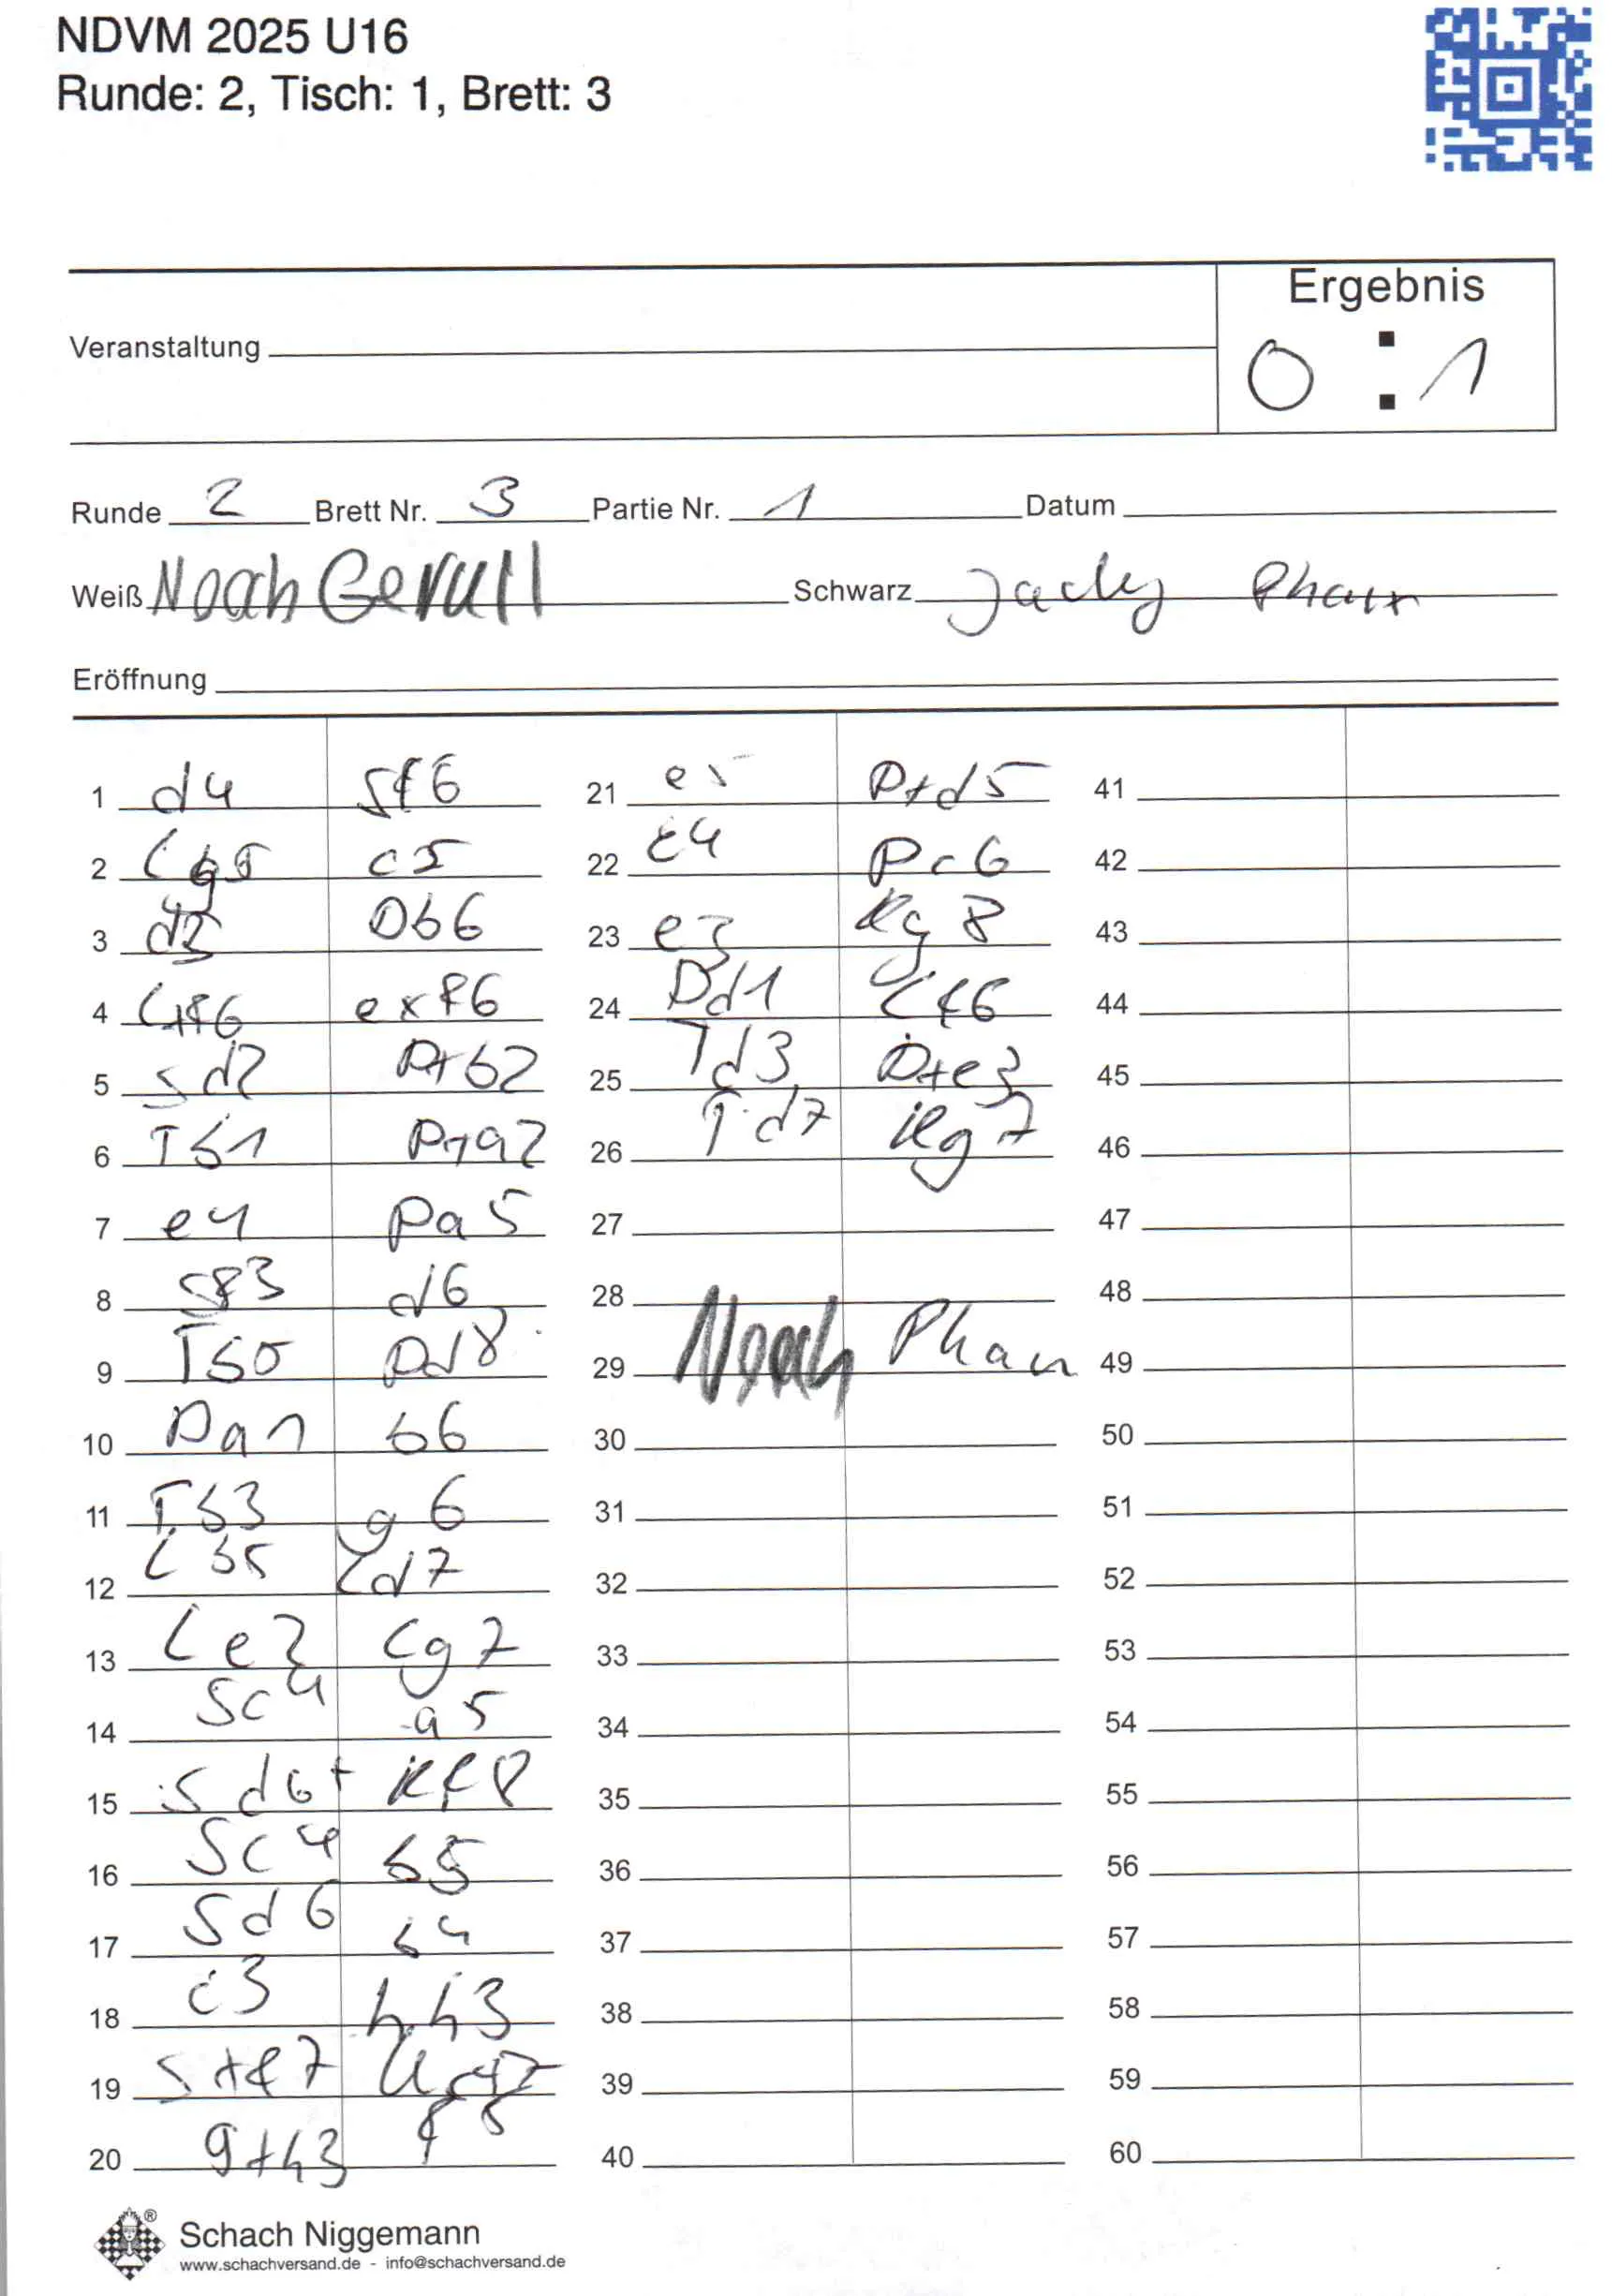 NDVM 2025 U16
Runde: 2, Tisch: 1, Brett: 3
Ergebnis
Veranstaltung
0 : 1
Runde 2 Brett Nr. 3 Partie Nr. 1 Datum
Weiß Noah Gerull Schwarz Jacky Phan
Eröffnung
1 d4 Sf6 21 e5 D+d5 41
2 Lg5 c5 22 c4 Dc6 42
3 d5 Db6 23 e3 Kg8 43
4 L+f6 exf6 24 Dd1 Lf6 44
5 Sd2 D+b2 25 Td3 D+e3 45
6 Tb1 D+a2 26 Td7 Kg7 46
7 e4 Da5 27 47
8 Sf3 d6 28 48
9 Tb5 Dd8 29 Noah Phan 49
10 Da1 b6 30 50
11 Tb3 g6 31 51
12 Lb5 Ld7 32 52
13 Le2 Lg7 33 53
14 Sc4 a5 34 54
15 Sd6+ Kf8 35 55
16 Sc4 b5 36 56
17 Sd6 b4 37 57
18 c3 Lh3 38 58
19 S+f7 39 59
20 g+h3 f5 40 60
Schach Niggemann
www.schachversand.de - info@schachversand.de